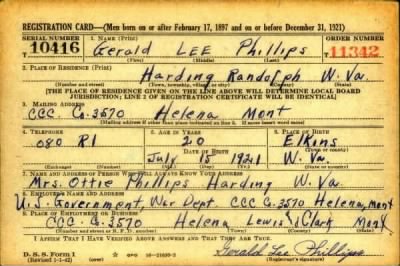 REGISTRATION CARD—(Men born on or after February 17, 1897 and on or before December 31, 1921)
SERIAL NUMBER 1. NAME (Print) ORDER NUMBER
10416 Gerald LEE Phillips 11342
(First) (Middle) (Last)
2. PLACE OF RESIDENCE (Print)
Harding Randolph W. Va.
(Number and street) (Town, township, village, or city) (County) (State)
[THE PLACE OF RESIDENCE GIVEN ON THE LINE ABOVE WILL DETERMINE LOCAL BOARD
JURISDICTION; LINE 2 OF REGISTRATION CERTIFICATE WILL BE IDENTICAL]
3. MAILING ADDRESS
CCC Co. 3570 Helena Mont
(Mailing address if other than place indicated on line 2. If same insert word same)
4. TELEPHONE 5. AGE IN YEARS 6. PLACE OF BIRTH
080 R1 20 Elkins
DATE OF BIRTH (Town or county)
July 15 1921 W. Va.
(Exchange) (Number) (Mo.) (Day) (Yr.) (State or country)
7. NAME AND ADDRESS OF PERSON WHO WILL ALWAYS KNOW YOUR ADDRESS
Mrs. Ottie Phillips Harding W. Va.
8. EMPLOYER'S NAME AND ADDRESS
U.S. Government, War Dept. CCC Co 3570 Helena, Mont
9. PLACE OF EMPLOYMENT OR BUSINESS
CCC Co. 3570 Helena Lewis & Clark Mont
(Number and street or R. F. D. number) (Town) (County) (State)
I AFFIRM THAT I HAVE VERIFIED ABOVE ANSWERS AND THAT THEY ARE TRUE.
D. S. S. Form 1 Gerald Lee Phillips
(Revised 1-1-42) (over) 16-21630-2 (Registrant's signature)